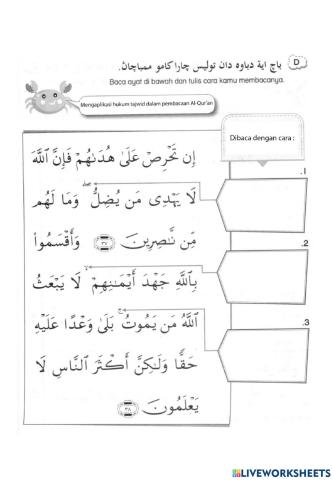 D باچ اية دباوه دان توليس چارا كامو ممباچاڽ.
Baca ayat di bawah dan tulis cara kamu membacanya.
Mengaplikasi hukum tajwid dalam pembacaan Al-Qur'an
Dibaca dengan cara :
إِن تَحْرِصْ عَلَىٰ هُدَىٰهُمْ فَإِنَّ ٱللَّهَ
1.
لَا يَهْدِى مَن يُضِلُّ ۖ وَمَا لَهُم
مِّن نَّـٰصِرِينَ ٣٧ وَأَقْسَمُوا۟
2.
بِٱللَّهِ جَهْدَ أَيْمَـٰنِهِمْ ۙ لَا يَبْعَثُ
ٱللَّهُ مَن يَمُوتُ ۚ بَلَىٰ وَعْدًا عَلَيْهِ
3.
حَقًّا وَلَـٰكِنَّ أَكْثَرَ ٱلنَّاسِ لَا
يَعْلَمُونَ ٣٨
LIVEWORKSHEETS